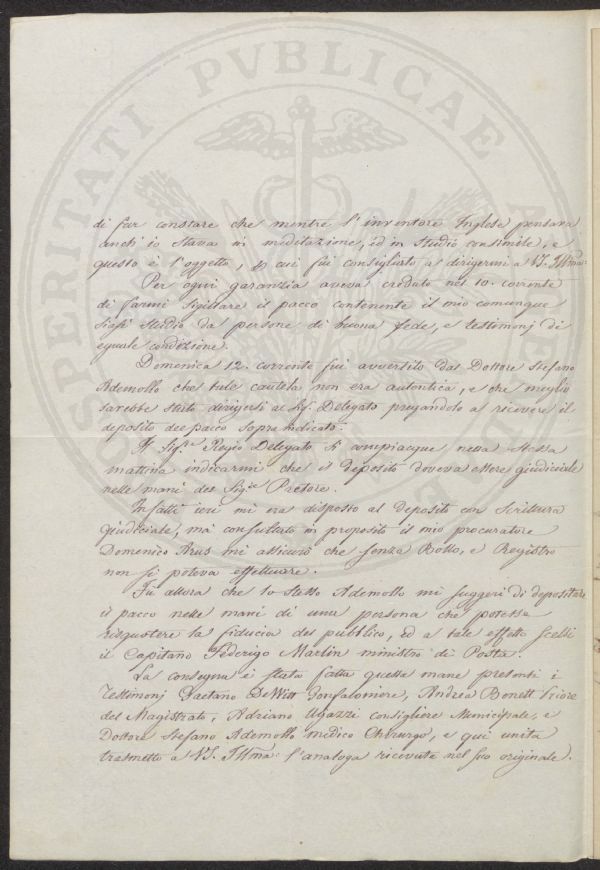 PROSPERITATI PVBLICAE A
di far constare che mentre l'inventore Inglese pensava
anch'io stava in meditazione, ed in studio consimile, e
questo è l'oggetto, p cui fui consigliato a dirigermi a VS. Illma.
Per ogni garanzia aveva creduto nel 10. corrente
di farmi sigillare il pacco contenente il mio comunque
siasi studio da persone di buona fede, e testimonj di
eguale condizione.
Domenica 12. corrente fui avvertito dal Dottore Stefano
Ademollo che tale cautela non era autentica, e che meglio
sarebbe stato dirigersi al Sig. Delegato pregandolo a ricevere il
deposito del pacco sopra indicato.
Il Sigre. Regio Delegato si compiacque nella stessa
mattina indicarmi che il deposito doveva essere giudiciale
nelle mani del Sigre Pretore.
Infatti ieri mi era disposto al deposito con Scrittura
giudiciale, ma consultato in proposito il mio procuratore
Domenico Arus mi assicurò che senza Bollo, e Registro
non si poteva effettuare.
Fù allora che lo stesso Ademollo mi suggerì di depositare
il pacco nelle mani di una persona che potesse
riscuotere la fiducia del pubblico, ed a tale effetto scelsi
il Capitano Federigo Martin ministro di Posta.
La consegna è stata fatta questa mane presenti i
Testimonj Gaetano DeWitt Gonfaloniere, Andrea Bonett Priore
del Magistrato, Adriano Ugazzi consigliere Municipale, e
Dottore Stefano Ademollo medico Chirurgo, e qui unita
trasmetto a VS. Illma: l'analoga ricevuta nel suo originale.